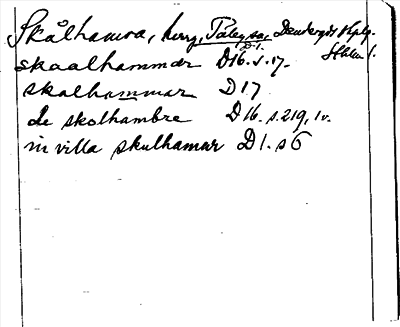 Skålhamra, herrg, Täby sn, Danderyds skplg.
D1.
Sthlm l.
skaalhammar D16. s. 17.
skalhammar D17
de skolhambre D16. s. 219, lv.
in villa skulhamar D1. s 6